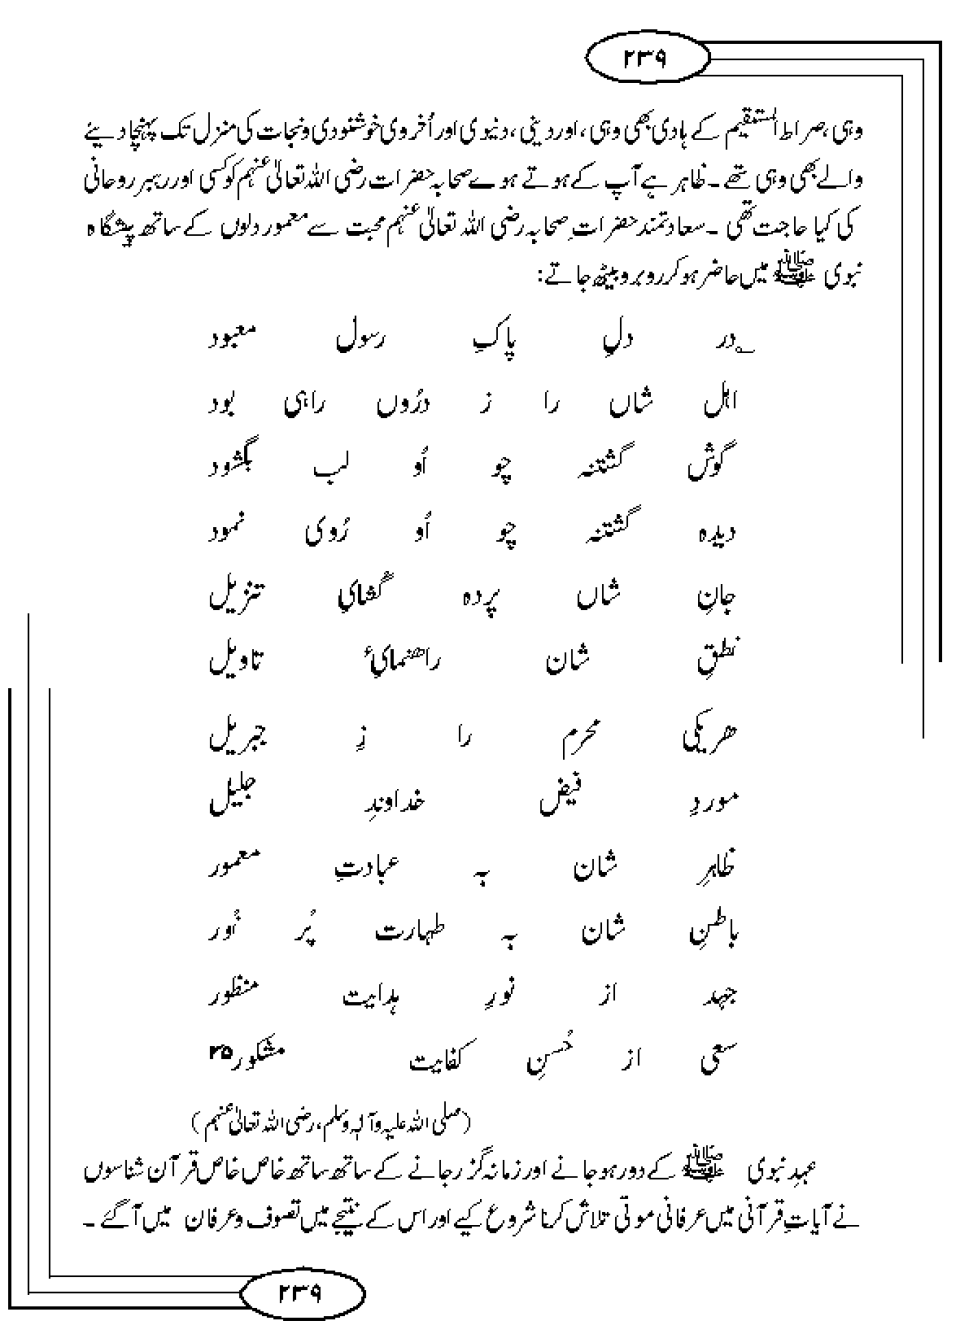 ۲۳۹
وہی، صراط المستقیم کے ہادی بھی وہی، اور دینی، دنیوی اور اُخروی خوشنودی و نجات کی منزل تک پہنچا دینے
والے بھی وہی تھے۔ ظاہر ہے آپ کے ہوتے ہوے صحابہ حضرات رضی اللہ تعالیٰ عنہم کو کسی اور رہبر روحانی
کی کیا حاجت تھی۔ سعادتمند حضراتِ صحابہ رضی اللہ تعالیٰ عنہم محبت سے معمور دلوں کے ساتھ پیشگاہ
نبوی ﷺ میں حاضر ہو کر روبرو بیٹھ جاتے:
؂در دلِ پاکِ رسول معبود
اہل شاں را ز درُوں راہی بود
گوش گشتنہ چو اُو لب بگشود
دیدہ گشتنہ چو اُو رُوی نمود
جانِ شاں پردہ گشایِ تنزیل
نطقِ شان راھنمایِٔ تاویل
ھریکی محرم را زِ جبریل
موردِ فیض خداوندِ جلیل
ظاہرِ شان بہ عبادتِ معمور
باطنِ شان بہ طہارت پُر نُور
جہد از نورِ ہدایت منظور
سعی از حُسنِ کفایت مشکور۳۵
(صلی اللہ علیہ وآلہٖ وسلم، رضی اللہ تعالیٰ عنہم)
عہدِ نبوی ﷺ کے دور ہو جانے اور زمانہ گزر جانے کے ساتھ ساتھ خاص خاص قرآن شناسوں
نے آیاتِ قرآنی میں عرفانی موتی تلاش کرنا شروع کیے اور اس کے نتیجے میں تصوف و عرفان میں آگئے۔
۲۳۹